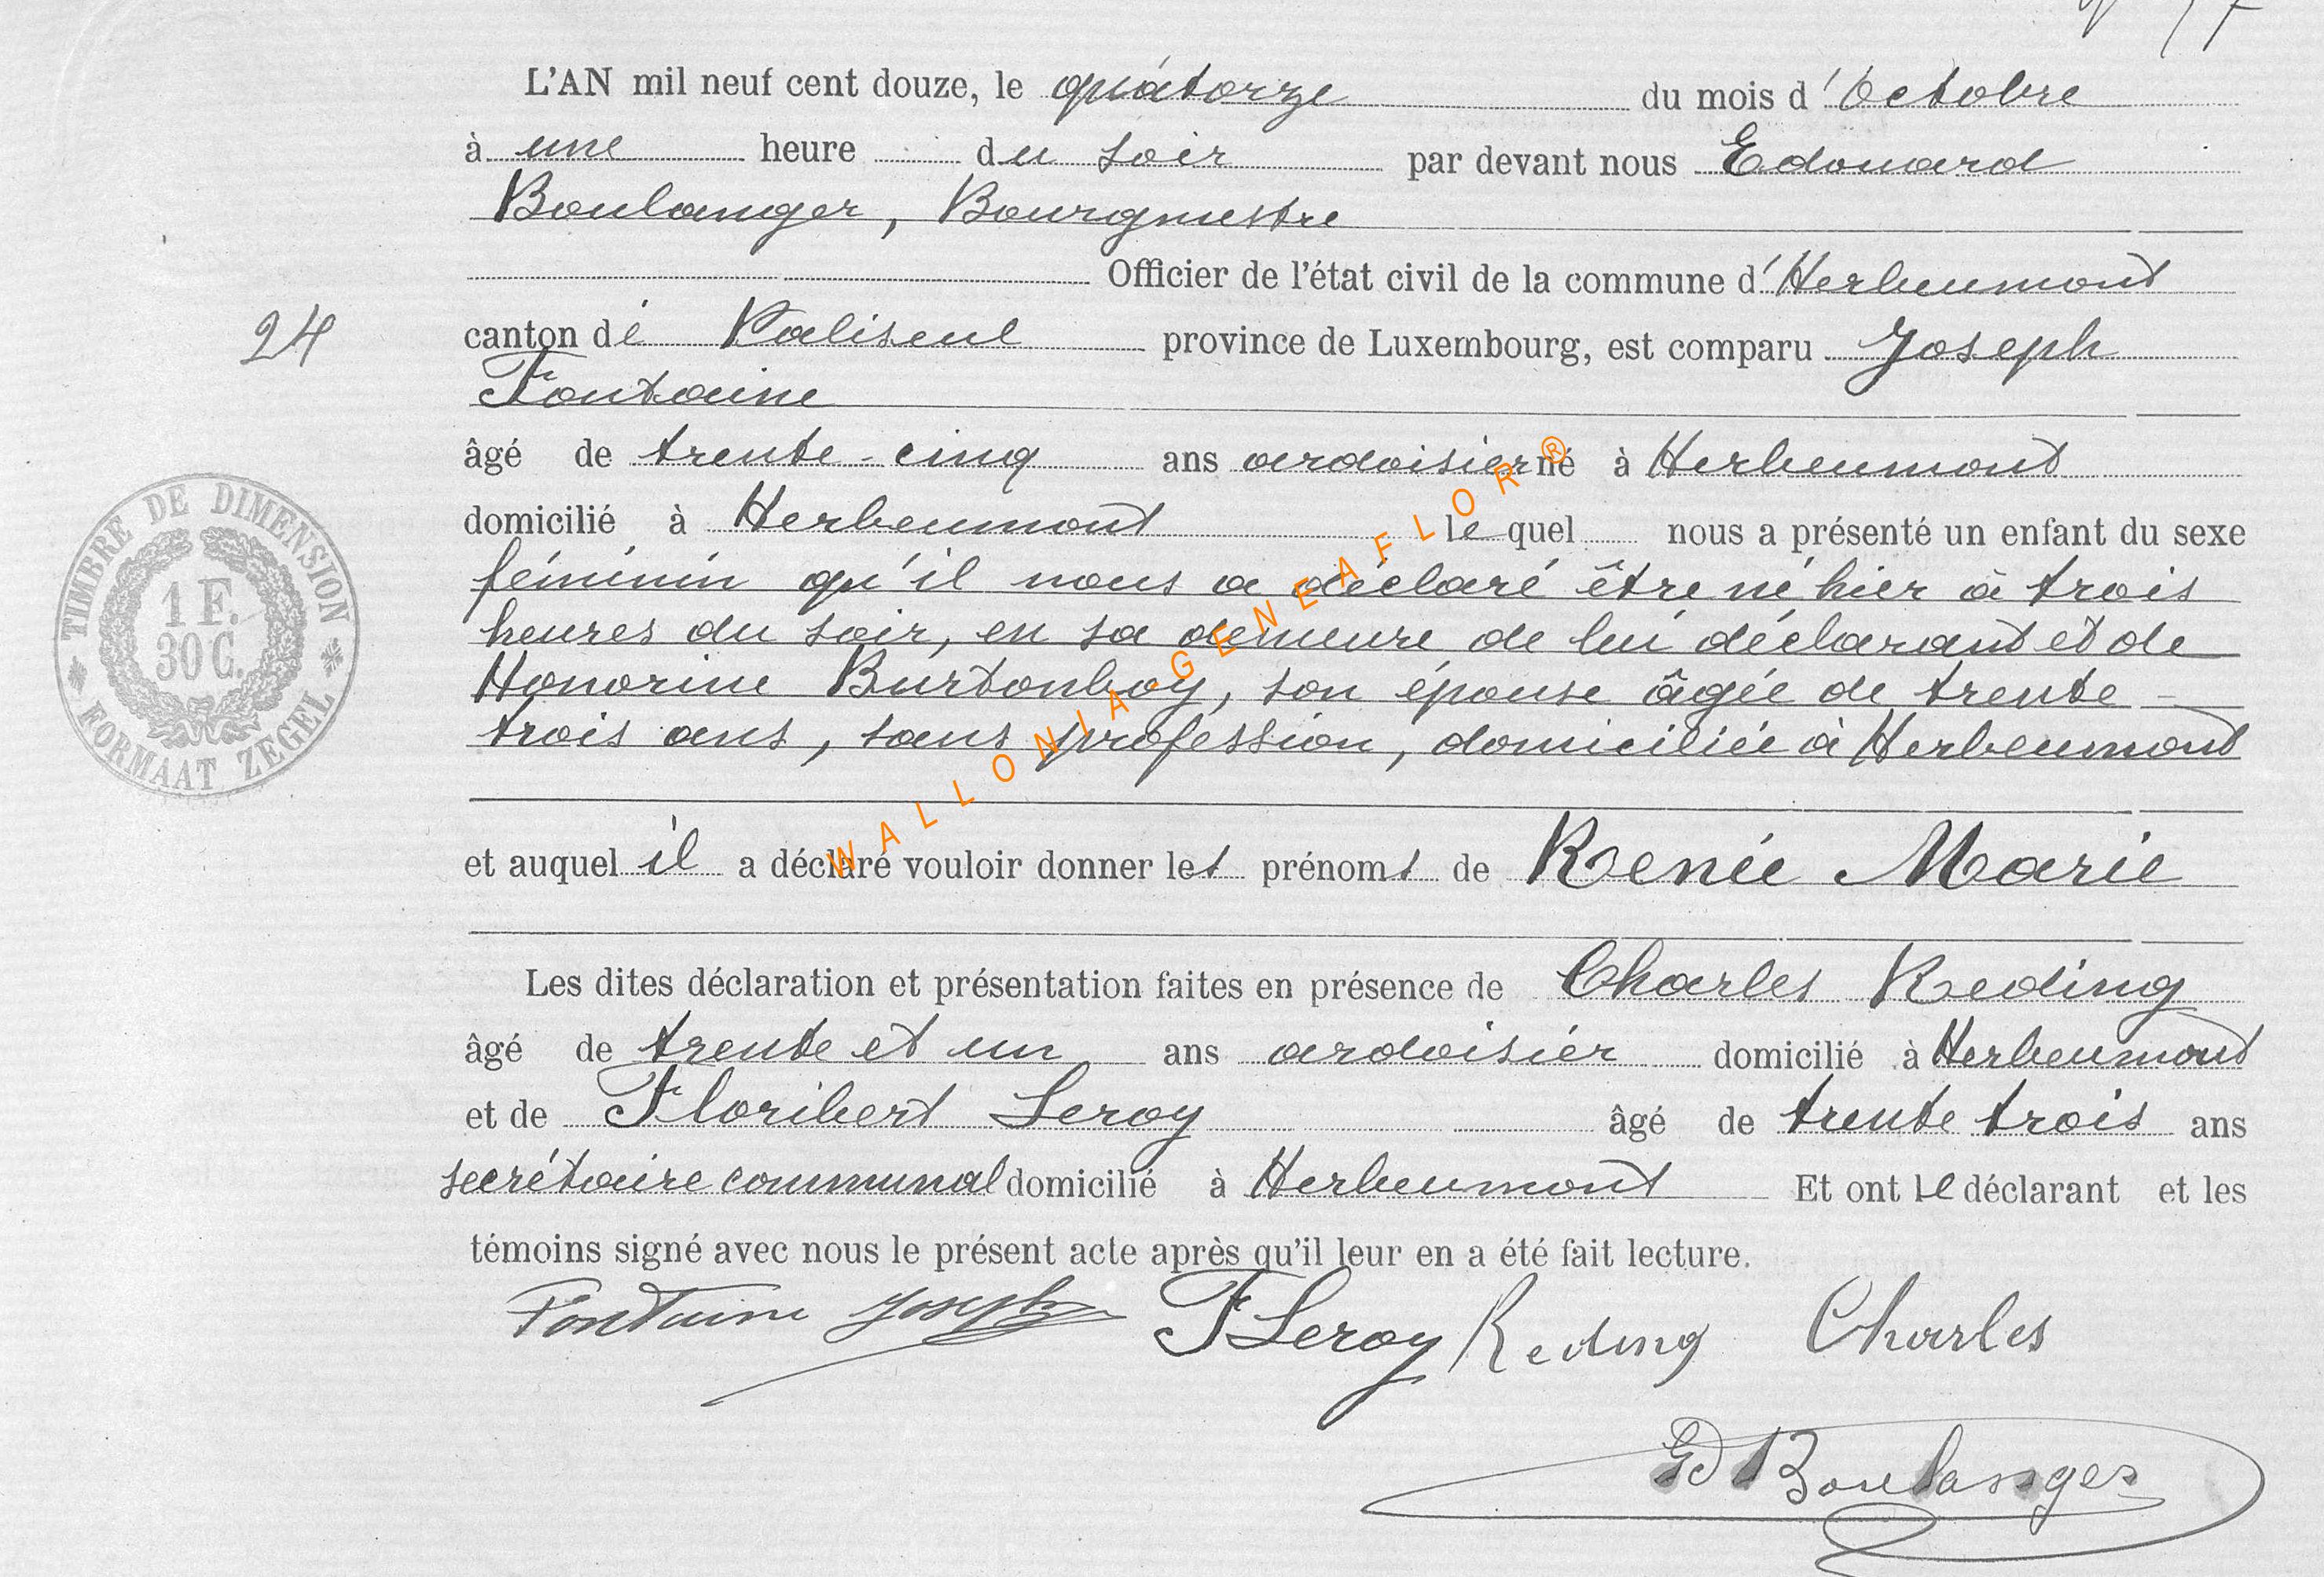 L'AN mil neuf cent douze, le quatorze du mois d'Octobre
à une heure du soir par devant nous Edouard
Boulanger, Bourgmestre
Officier de l'état civil de la commune d'Herbeumont
24
canton de Paliseul province de Luxembourg, est comparu Joseph
Fontaine
âgé de trente-cinq ans ardoisier né à Herbeumont
domicilié à Herbeumont lequel nous a présenté un enfant du sexe
féminin qu'il nous a déclaré être né hier à trois
heures du soir, en sa demeure de lui déclarant et de
Honorine Burtonboy, son épouse âgée de trente-
trois ans, sans profession, domiciliée à Herbeumont
et auquel il a déclaré vouloir donner les prénoms de Renée Marie
Les dites déclaration et présentation faites en présence de Charles Reding
âgé de trente et un ans ardoisier domicilié à Herbeumont
et de Floribert Leroy âgé de trente trois ans
secrétaire communal domicilié à Herbeumont Et ont le déclarant et les
témoins signé avec nous le présent acte après qu'il leur en a été fait lecture.
Fontaine Joseph FLeroy Reding Charles
Ed Boulanger
TIMBRE DE DIMENSION
1 F.
30 C.
FORMAAT ZEGEL
WALLONIA-GENEAFLOR ®